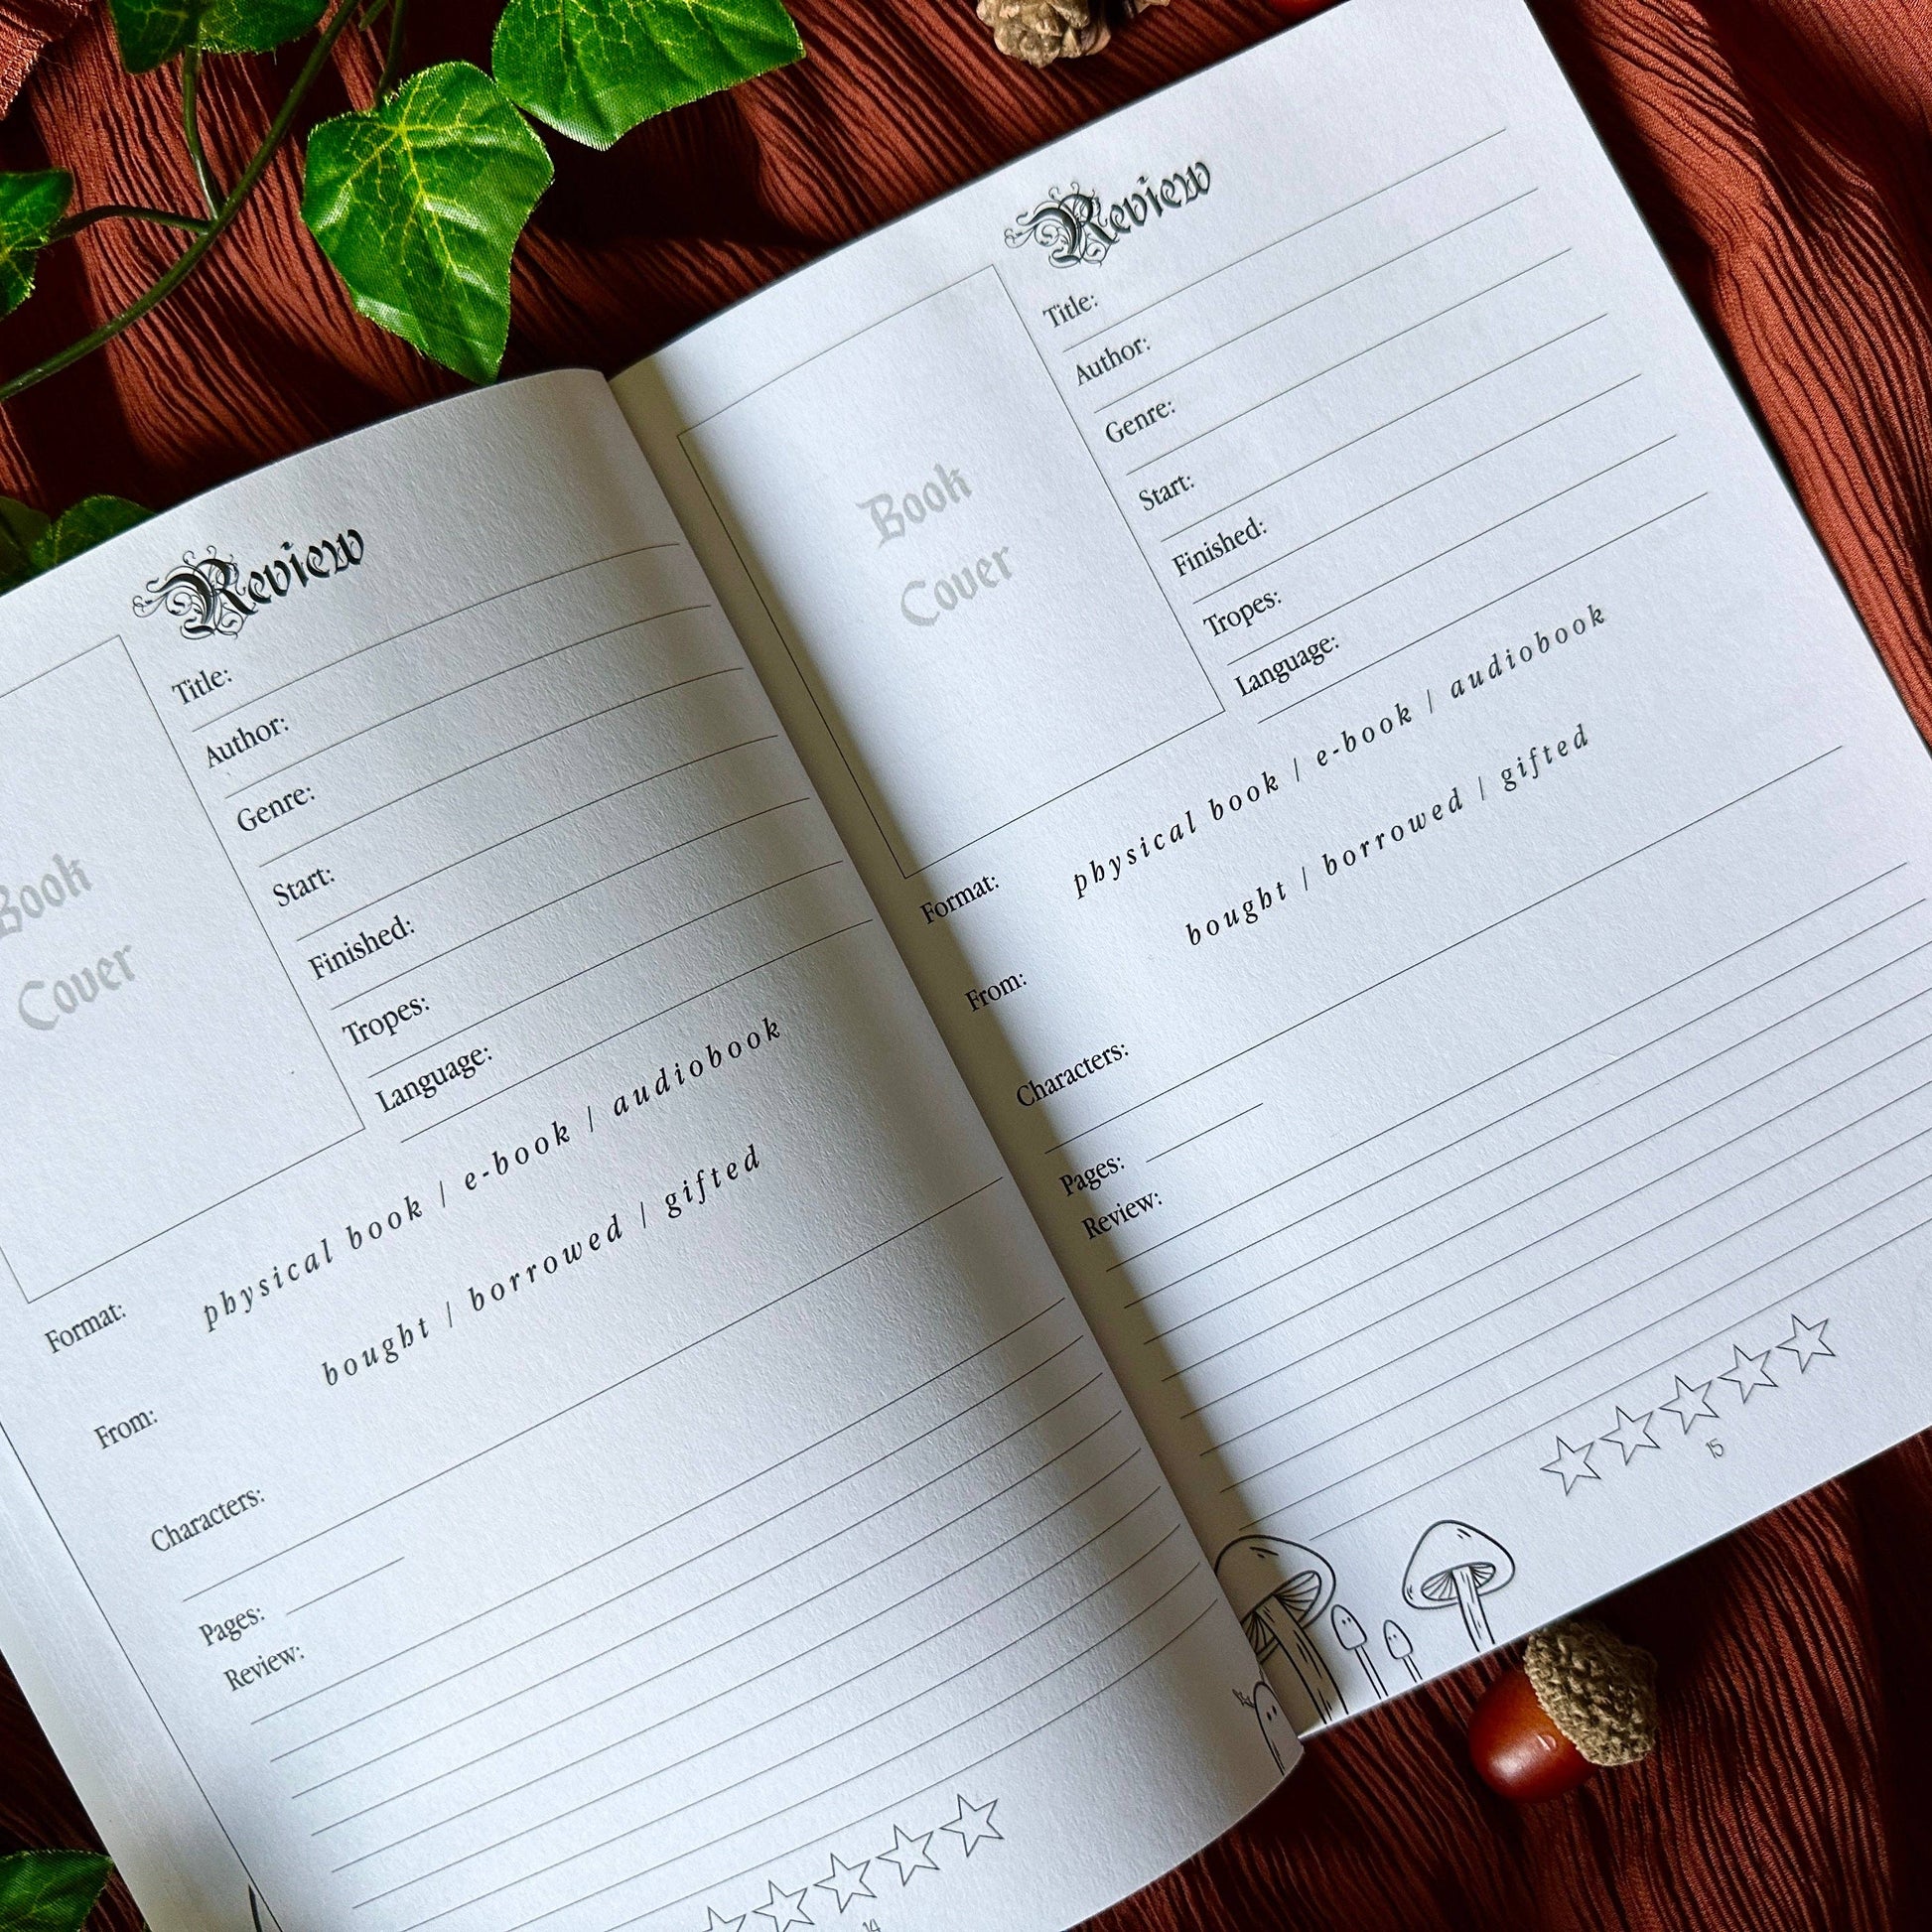 Review
Title:
Author:
Genre:
Start:
Finished:
Tropes:
Language:
Book
Cover
Format: physical book / e-book / audiobook
From: bought / borrowed / gifted
Characters:
Pages:
Review:
14
Review
Title:
Author:
Genre:
Start:
Finished:
Tropes:
Language:
Book
Cover
Format: physical book / e-book / audiobook
From: bought / borrowed / gifted
Characters:
Pages:
Review:
15